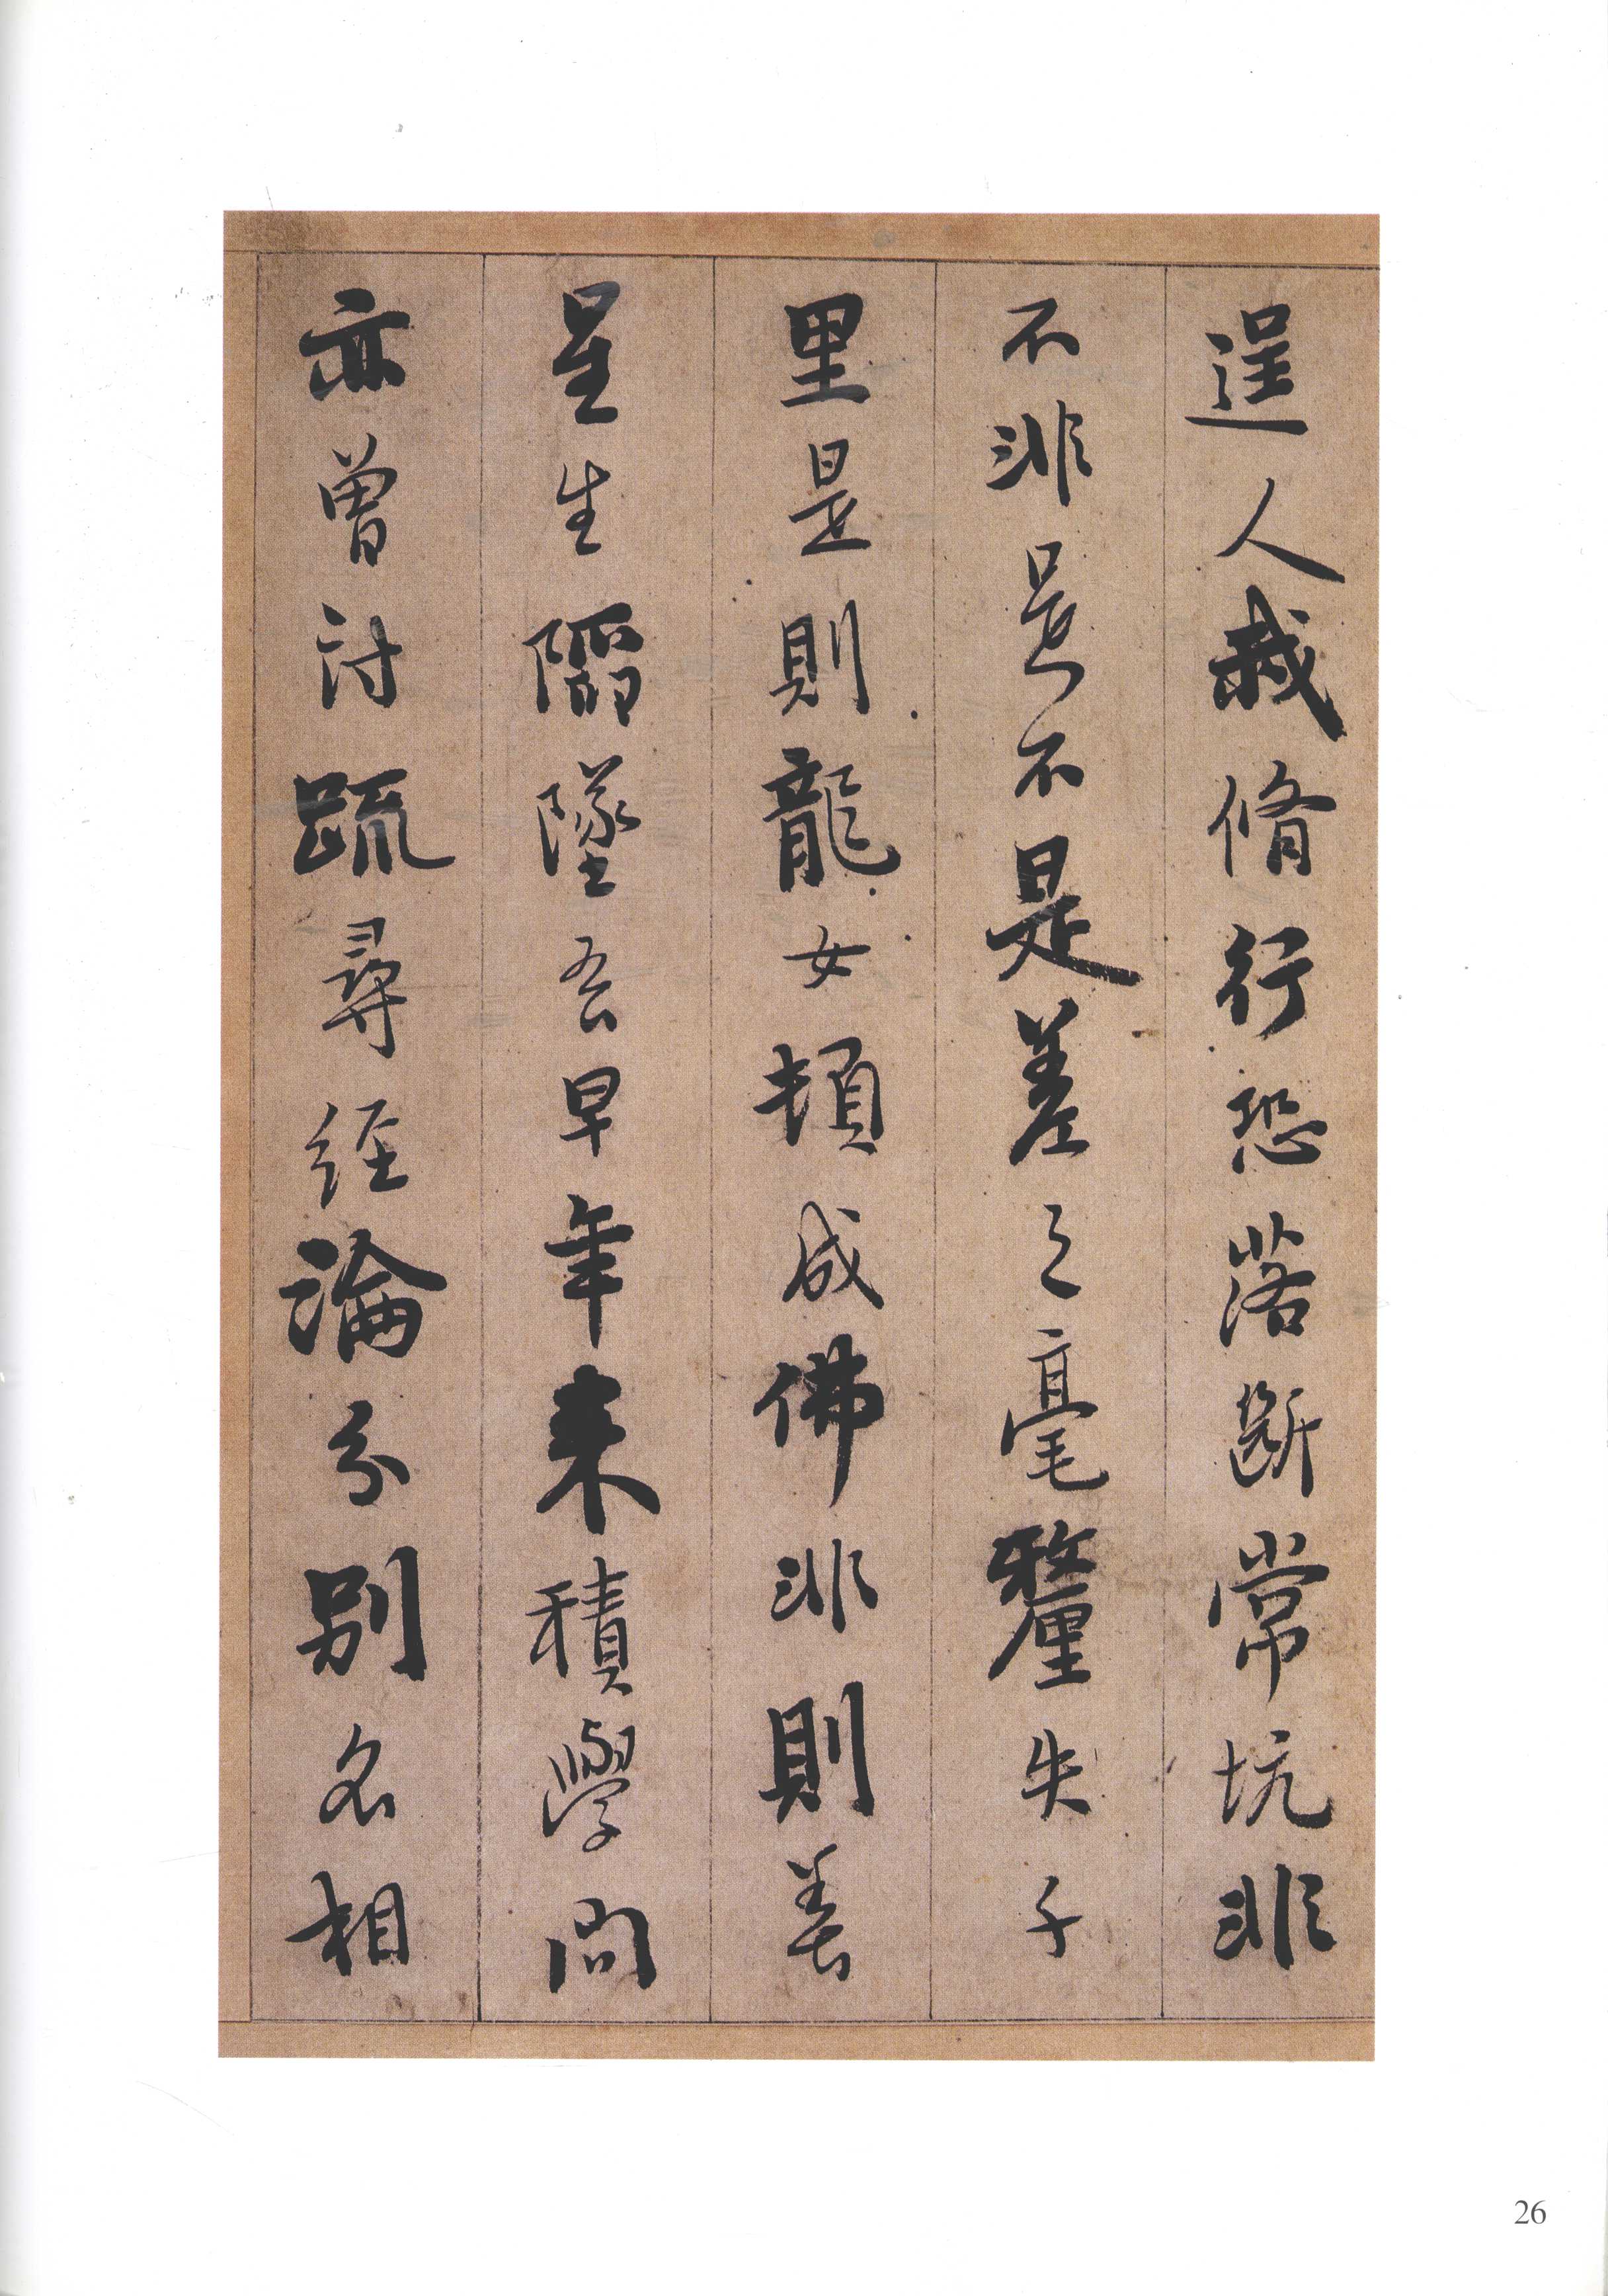 逞人我脩行恐落斷常坑非
不非是不是差之毫釐失千
里是則龍女頓成佛非則善
星生陷墜吾早年来積學問
亦曾討䟽尋經論分別名相
26